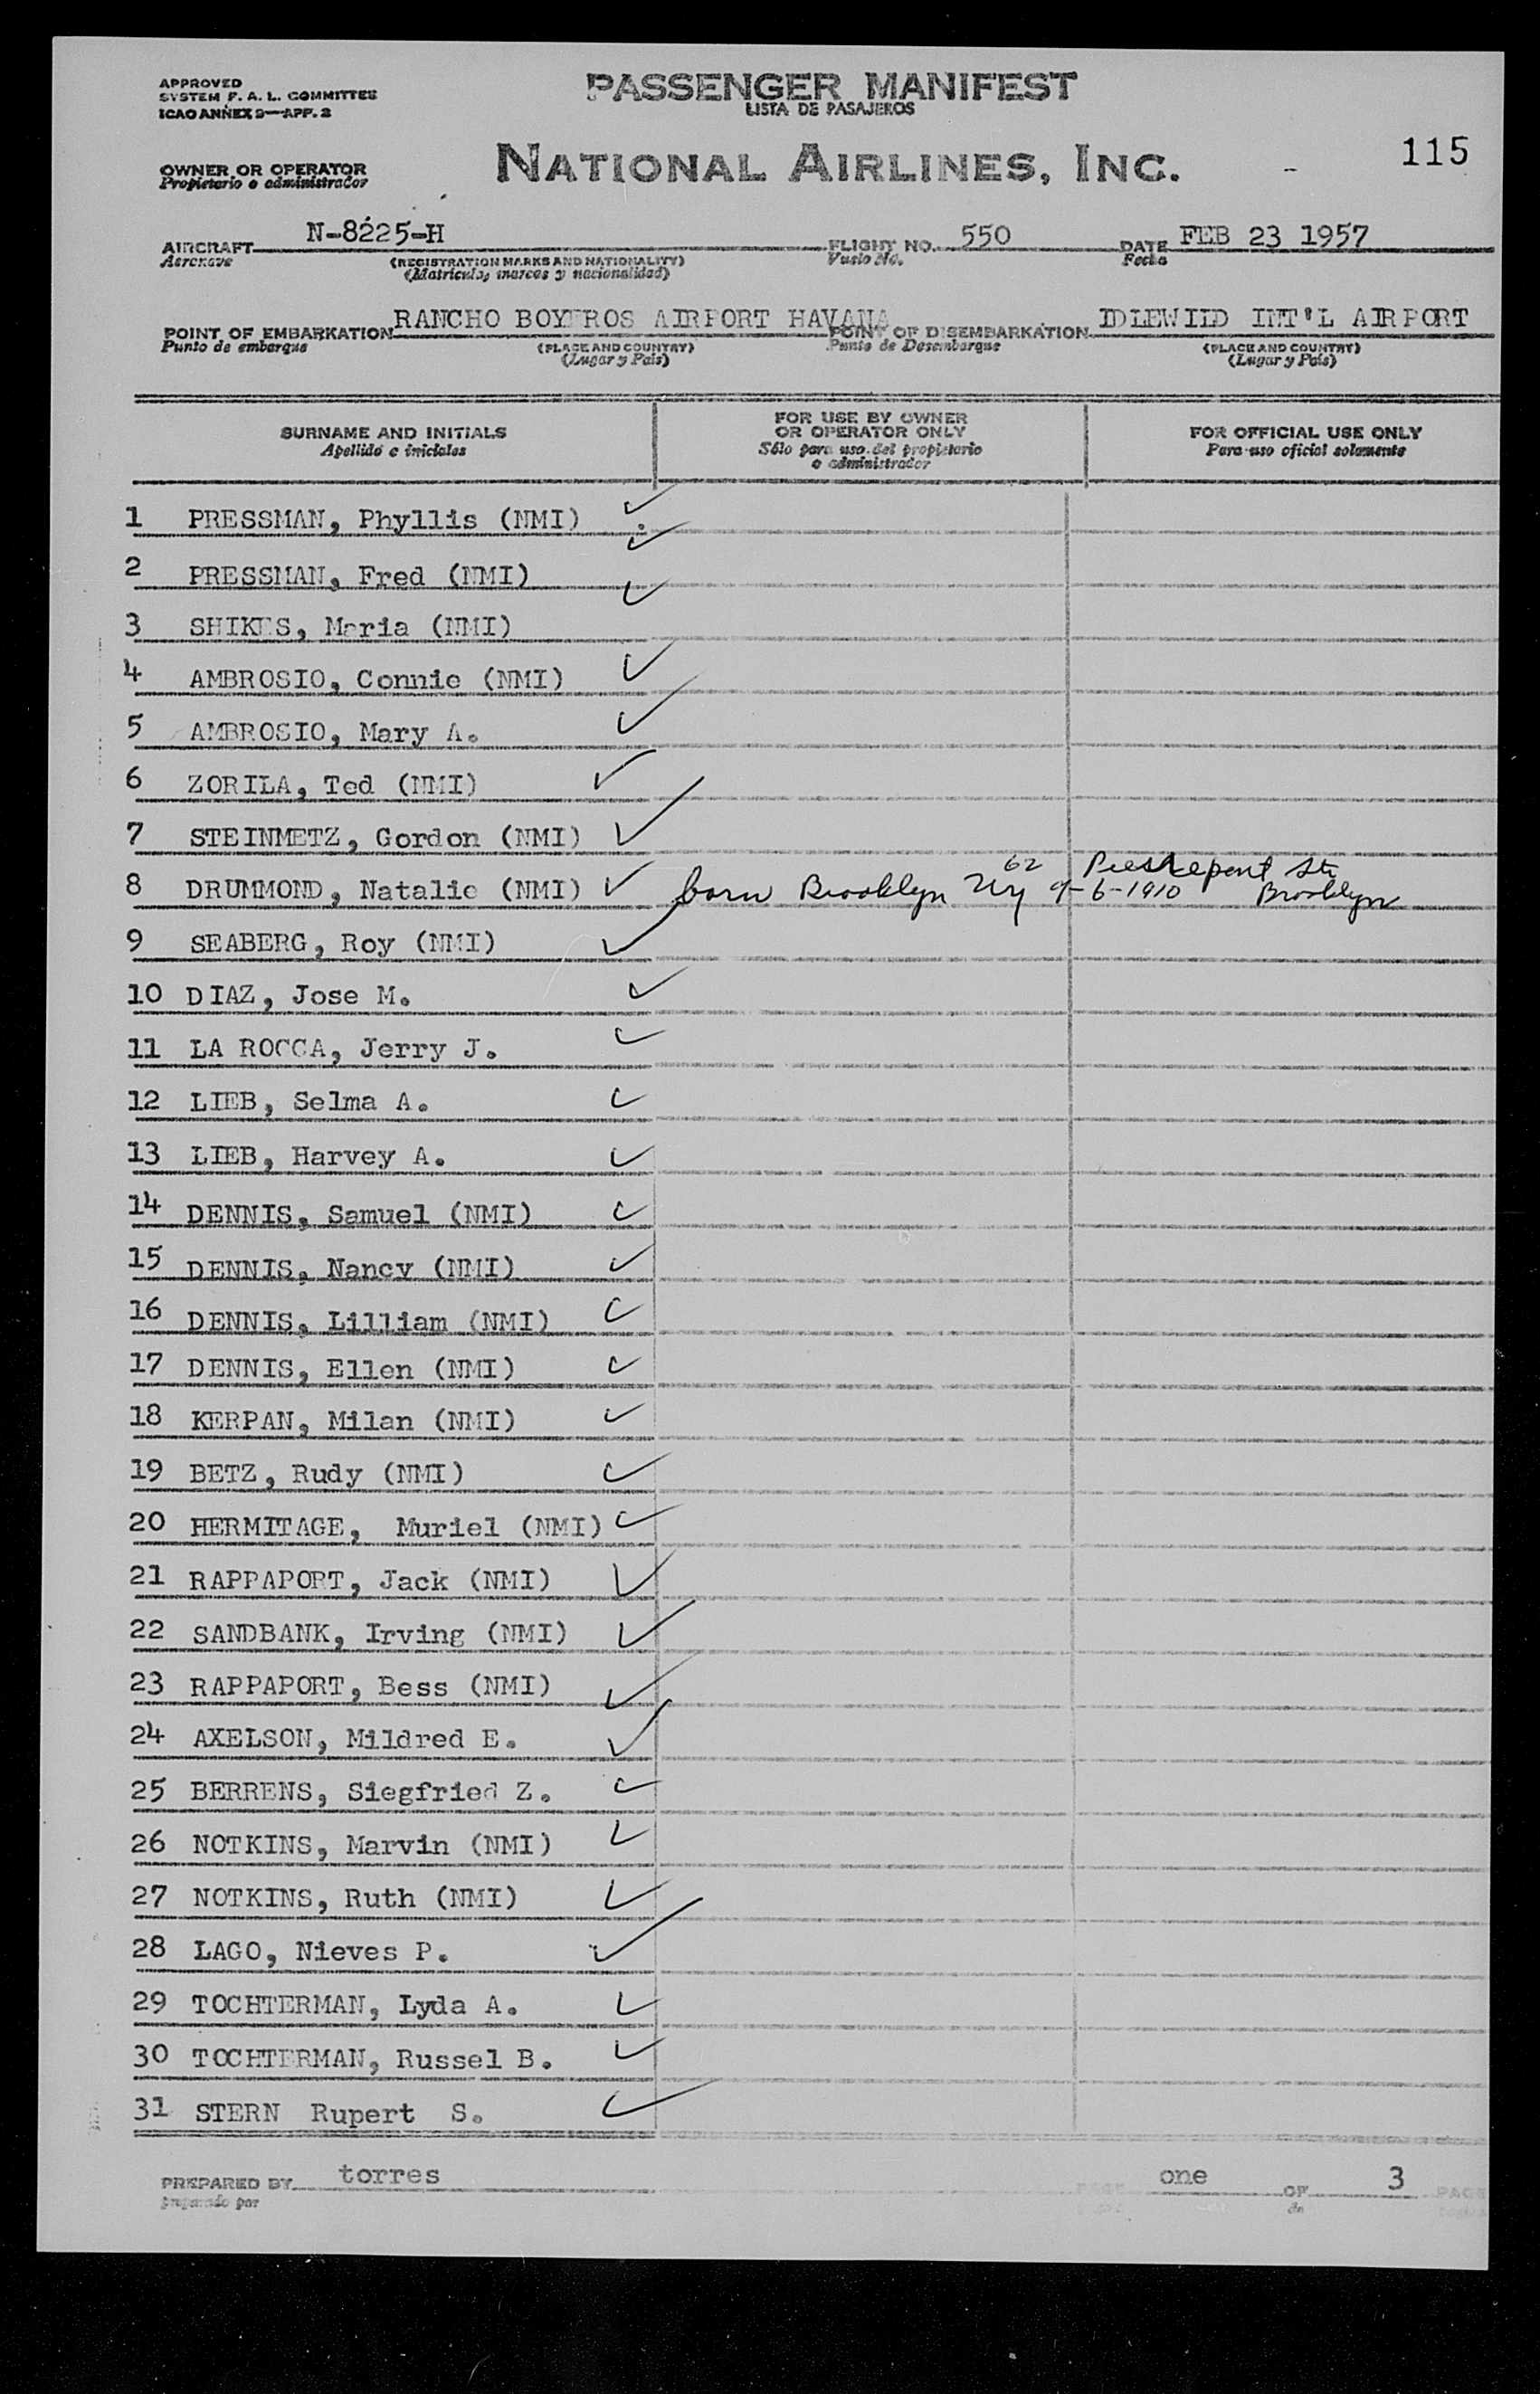 APPROVED
SYSTEM F. A. L. COMMITTEE
ICAO ANNEX 9—APP. 2
PASSENGER MANIFEST
LISTA DE PASAJEROS
115
OWNER OR OPERATOR
Propietario o administrador
NATIONAL AIRLINES, INC.
AIRCRAFT N-8225-H FLIGHT NO. 550 DATE FEB 23 1957
Aeronave (REGISTRATION MARKS AND NATIONALITY) Vuelo No. Fecha
(Matricula, marcas y nacionalidad)
POINT OF EMBARKATION RANCHO BOYEROS AIRPORT HAVANA POINT OF DISEMBARKATION IDLEWILD INT'L AIRPORT
Punto de embarque (PLACE AND COUNTRY) Punto de Desembarque (PLACE AND COUNTRY)
(Lugar y País) (Lugar y País)
SURNAME AND INITIALS
Apellido e iniciales
FOR USE BY OWNER
OR OPERATOR ONLY
Sólo para uso del propietario
o administrador
FOR OFFICIAL USE ONLY
Para uso oficial solamente
1 PRESSMAN, Phyllis (NMI)
2 PRESSMAN, Fred (NMI)
3 SHIKES, Maria (NMI)
4 AMBROSIO, Connie (NMI)
5 AMBROSIO, Mary A.
6 ZORILA, Ted (NMI)
7 STEINMETZ, Gordon (NMI)
62 St.
8 DRUMMOND, Natalie (NMI) born Brooklyn Ny 9-6-1910 Brooklyn
9 SEABERG, Roy (NMI)
10 DIAZ, Jose M.
11 LA ROCCA, Jerry J.
12 LIEB, Selma A.
13 LIEB, Harvey A.
14 DENNIS, Samuel (NMI)
15 DENNIS, Nancy (NMI)
16 DENNIS, Lilliam (NMI)
17 DENNIS, Ellen (NMI)
18 KERPAN, Milan (NMI)
19 BETZ, Rudy (NMI)
20 HERMITAGE, Muriel (NMI)
21 RAPPAPORT, Jack (NMI)
22 SANDBANK, Irving (NMI)
23 RAPPAPORT, Bess (NMI)
24 AXELSON, Mildred E.
25 BERRENS, Siegfried Z.
26 NOTKINS, Marvin (NMI)
27 NOTKINS, Ruth (NMI)
28 LAGO, Nieves P.
29 TOCHTERMAN, Lyda A.
30 TOCHTERMAN, Russel B.
31 STERN Rupert S.
PREPARED BY torres PAGE one OF 3 PAGE
preparado por de